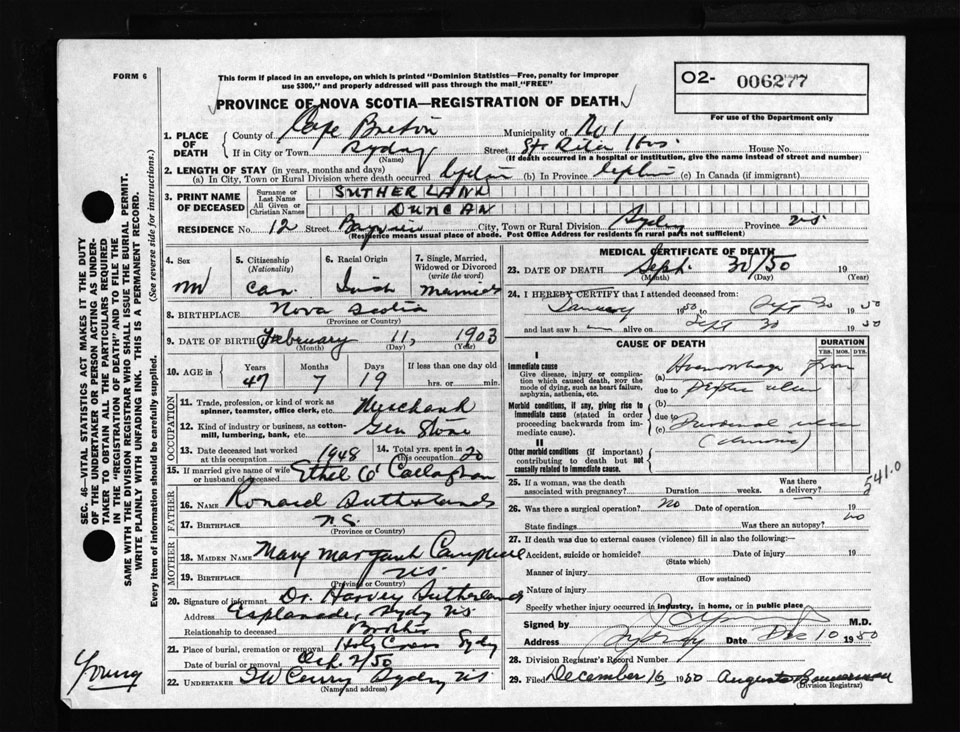 FORM 6
This form if placed in an envelope, on which is printed "Dominion Statistics—Free, penalty for improper
use $300," and properly addressed will pass through the mail "FREE"
O2- 006277
For use of the Department only
PROVINCE OF NOVA SCOTIA—REGISTRATION OF DEATH
SEC. 46—VITAL STATISTICS ACT MAKES IT THE DUTY
OF THE UNDERTAKER OR PERSON ACTING AS UNDER-
TAKER TO OBTAIN ALL THE PARTICULARS REQUIRED
IN THE "REGISTRATION OF DEATH" AND TO FILE THE
SAME WITH THE DIVISION REGISTRAR WHO SHALL ISSUE THE BURIAL PERMIT.
WRITE PLAINLY WITH UNFADING INK. THIS IS A PERMANENT RECORD.
Every item of information should be carefully supplied. (See reverse side for instructions.)
1. PLACE OF DEATH
County of Cape Breton Municipality of No 1
If in City or Town Sydney Street St Rita Hos. House No.
(Name) (If death occurred in a hospital or institution, give the name instead of street and number)
2. LENGTH OF STAY (in years, months and days)
(a) In City, Town or Rural Division where death occurred (b) In Province (c) In Canada (if immigrant)
3. PRINT NAME OF DECEASED
Surname or Last Name SUTHERLAND
All Given or Christian Names DUNCAN
RESIDENCE No. 12 Street Bayview City, Town or Rural Division Sydney Province NS
(Residence means usual place of abode. Post Office Address for residents in rural parts not sufficient)
4. Sex M
5. Citizenship (Nationality) Can.
6. Racial Origin
7. Single, Married, Widowed or Divorced (write the word) Married
8. BIRTHPLACE Nova Scotia
(Province or Country)
9. DATE OF BIRTH February 11, 1903
(Month) (Day) (Year)
10. AGE in Years 47 Months 7 Days 19 If less than one day old hrs. or min.
OCCUPATION
11. Trade, profession, or kind of work as spinner, teamster, office clerk, etc. Merchant
12. Kind of industry or business, as cotton-mill, lumbering, bank, etc. Gen Store
13. Date deceased last worked at this occupation 1948 14. Total yrs. spent in this occupation 20
15. If married give name of wife or husband of deceased Ethel O'Callaghan
FATHER
16. NAME Ronald Sutherland
17. BIRTHPLACE N.S.
(Province or Country)
MOTHER
18. MAIDEN NAME Mary Margaret Campbell
19. BIRTHPLACE NS
(Province or Country)
20. Signature of informant Dr. Harvey Sutherland
Address Esplanade, Sydney NS
Relationship to deceased Brother
21. Place of burial, cremation or removal Holy Cross Sydney
Date of burial or removal Oct. 2/50
22. UNDERTAKER T W Curry Sydney NS
(Name and address)
Young
MEDICAL CERTIFICATE OF DEATH
23. DATE OF DEATH Sept. 30/50 19
(Month) (Day) (Year)
24. I HEREBY CERTIFY that I attended deceased from:
January 1950 to Sept 30 1950
and last saw h alive on Sept 30 1950
CAUSE OF DEATH
DURATION
YRS. MOS. DYS.
I
Immediate cause
Give disease, injury or complication which caused death, not the mode of dying, such as heart failure, asphyxia, asthenia, etc.
(a) Hemorrhage from
due to Peptic ulcer
Morbid conditions, if any, giving rise to immediate cause (stated in order proceeding backwards from immediate cause).
(b)
due to
(c) Duodenal ulcer
(chronic)
II
Other morbid conditions (if important) contributing to death but not causally related to immediate cause.
541.0
25. If a woman, was the death associated with pregnancy? Duration weeks. Was there a delivery?
26. Was there a surgical operation? No Date of operation 19
State findings Was there an autopsy? No
27. If death was due to external causes (violence) fill in also the following:—
Accident, suicide or homicide? Date of injury 19
(State which)
Manner of injury
(How sustained)
Nature of injury
Specify whether injury occurred in industry, in home, or in public place
Signed by M.D.
Address Sydney Date Dec 10 1950
28. Division Registrar's Record Number
29. Filed December 16, 1950 Augusta Bannerman
(Division Registrar)